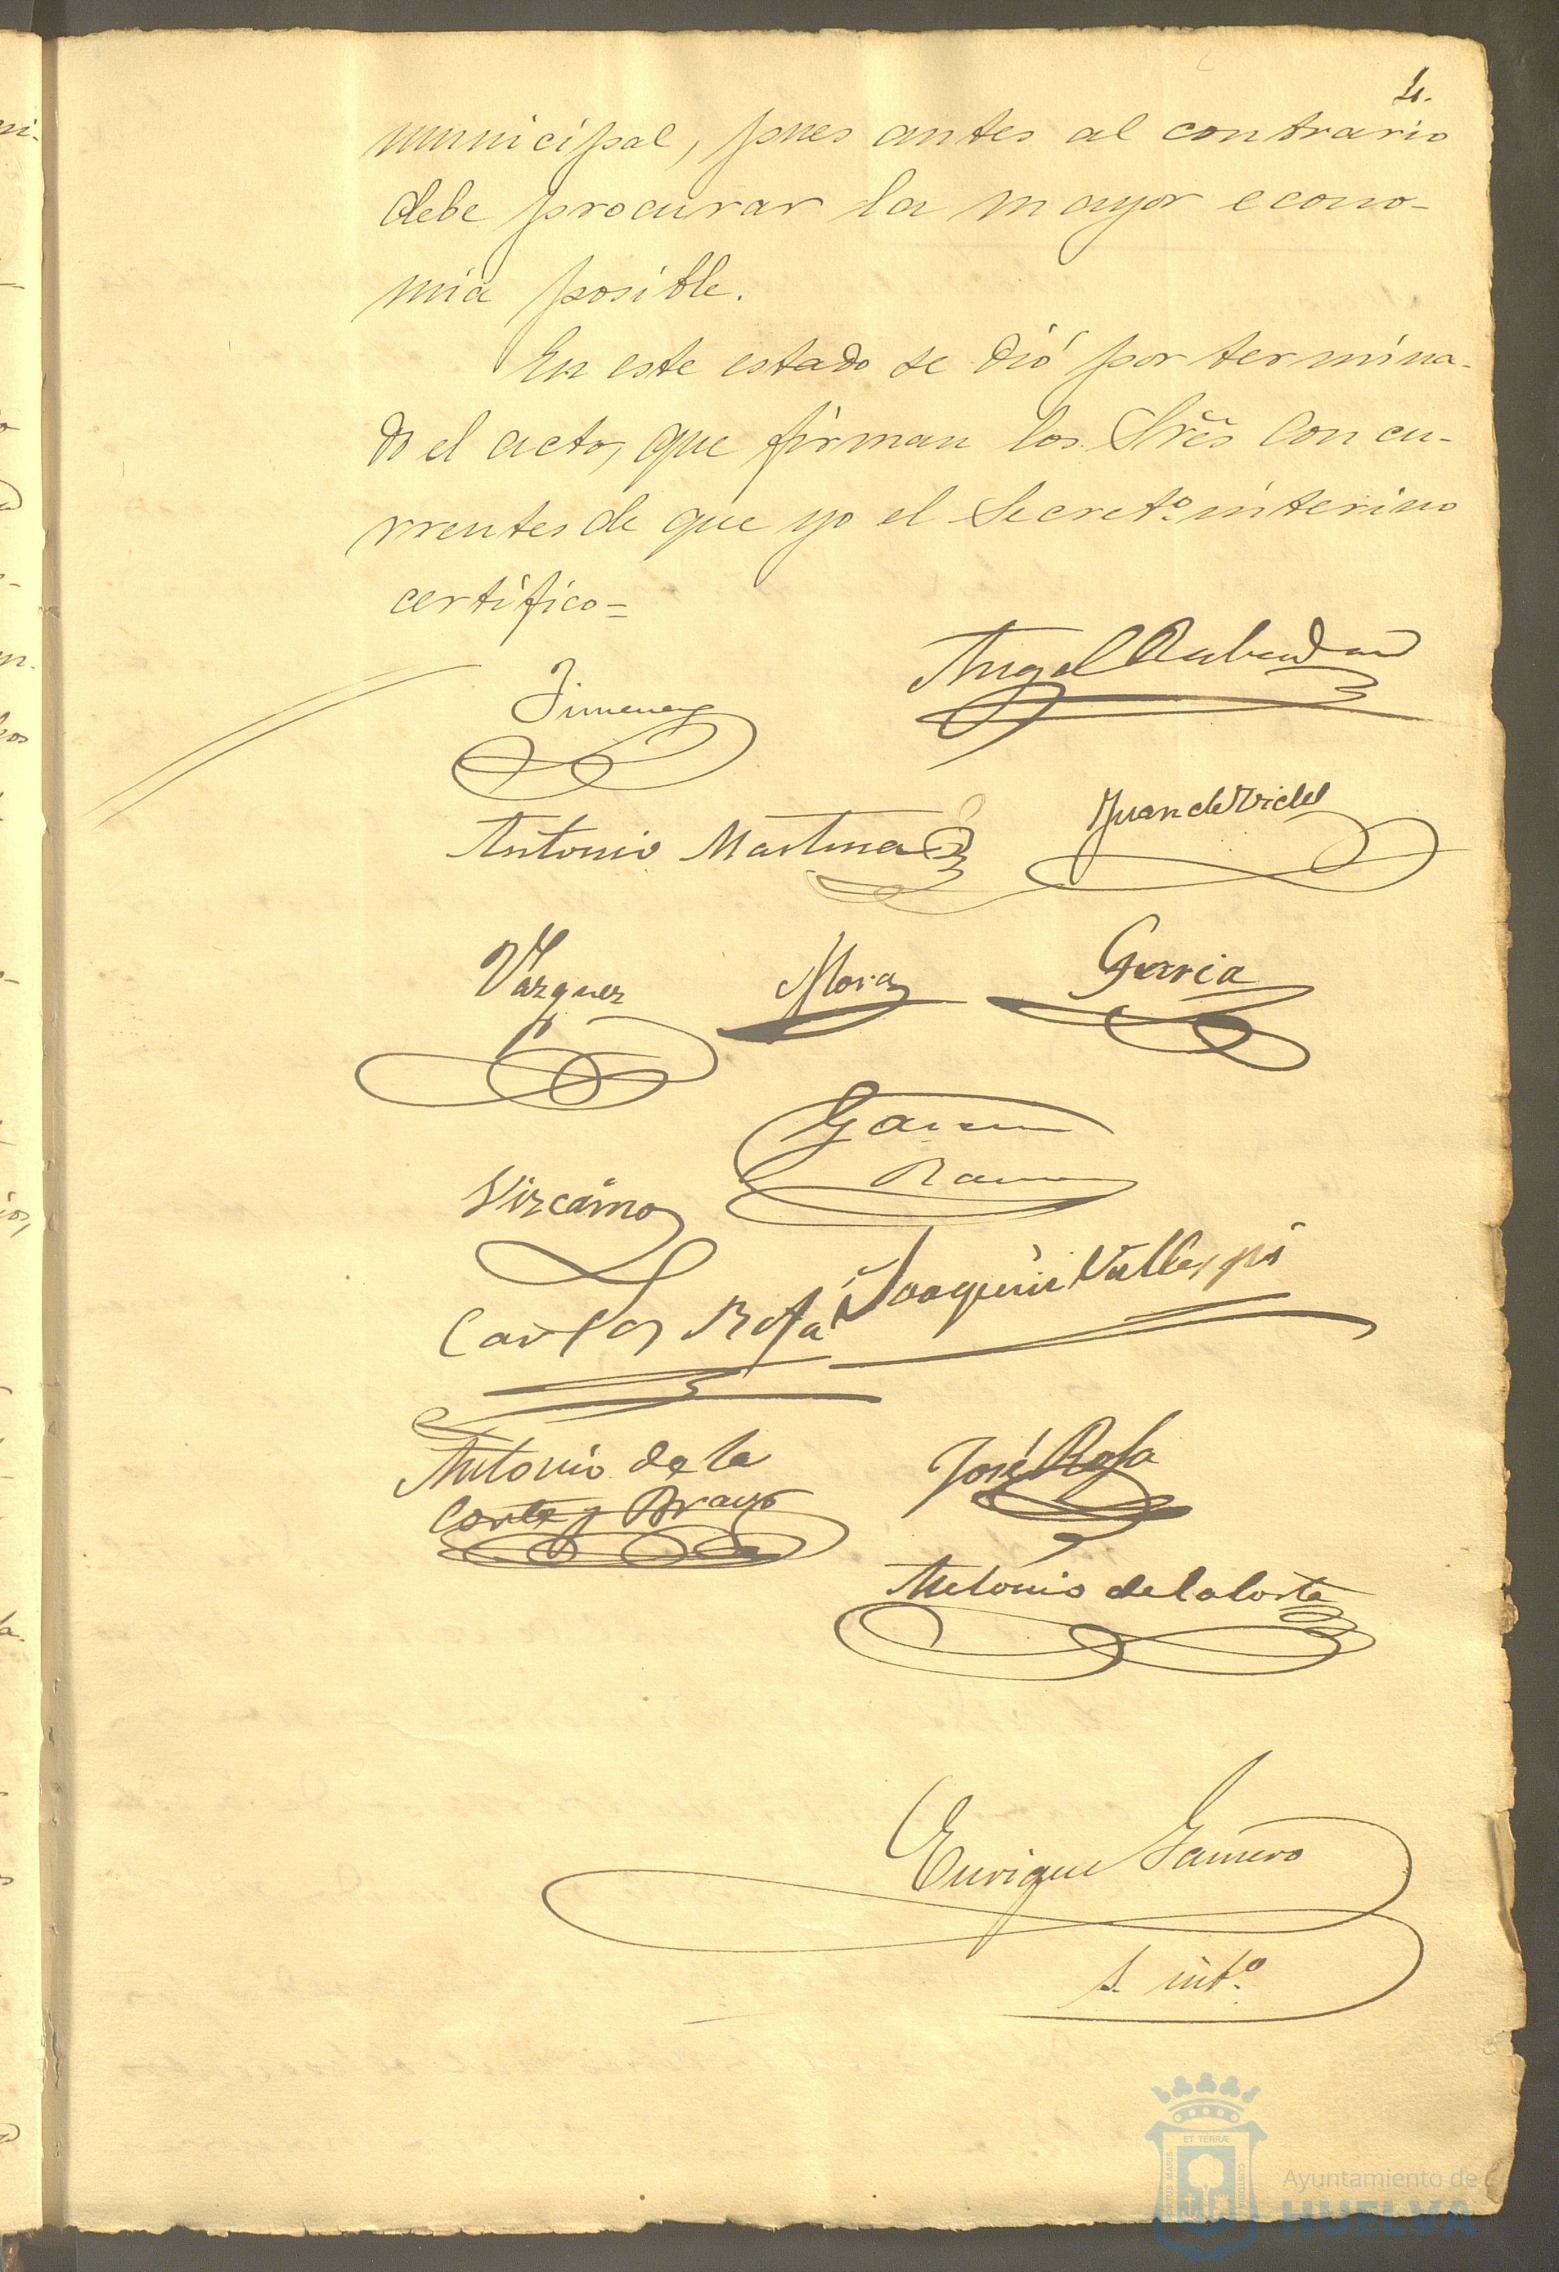 4.
municipal, pues antes al contrario
debe procurar la mayor econo-
mia posible.
En este estado se dió por termina-
do el acto, que firman los Sres Concu-
rrentes de que yo el Secretº. interino
certifico=
Angel Rabadan
Jimenez
Juan de Vides
Antonio Martinez
Vazquez Mora Garcia
Garcia
Ramos
Vizcaino
Joaquin Vallespi
Carlos Rofa
Antonio de la
Corte y Brayo
José Rofa
Antonio de la Corte
Enrique Gamero
S. intº.
ET TERRÆ
PORTUS MARIS
CUSTODIA
Ayuntamiento de
HUELVA